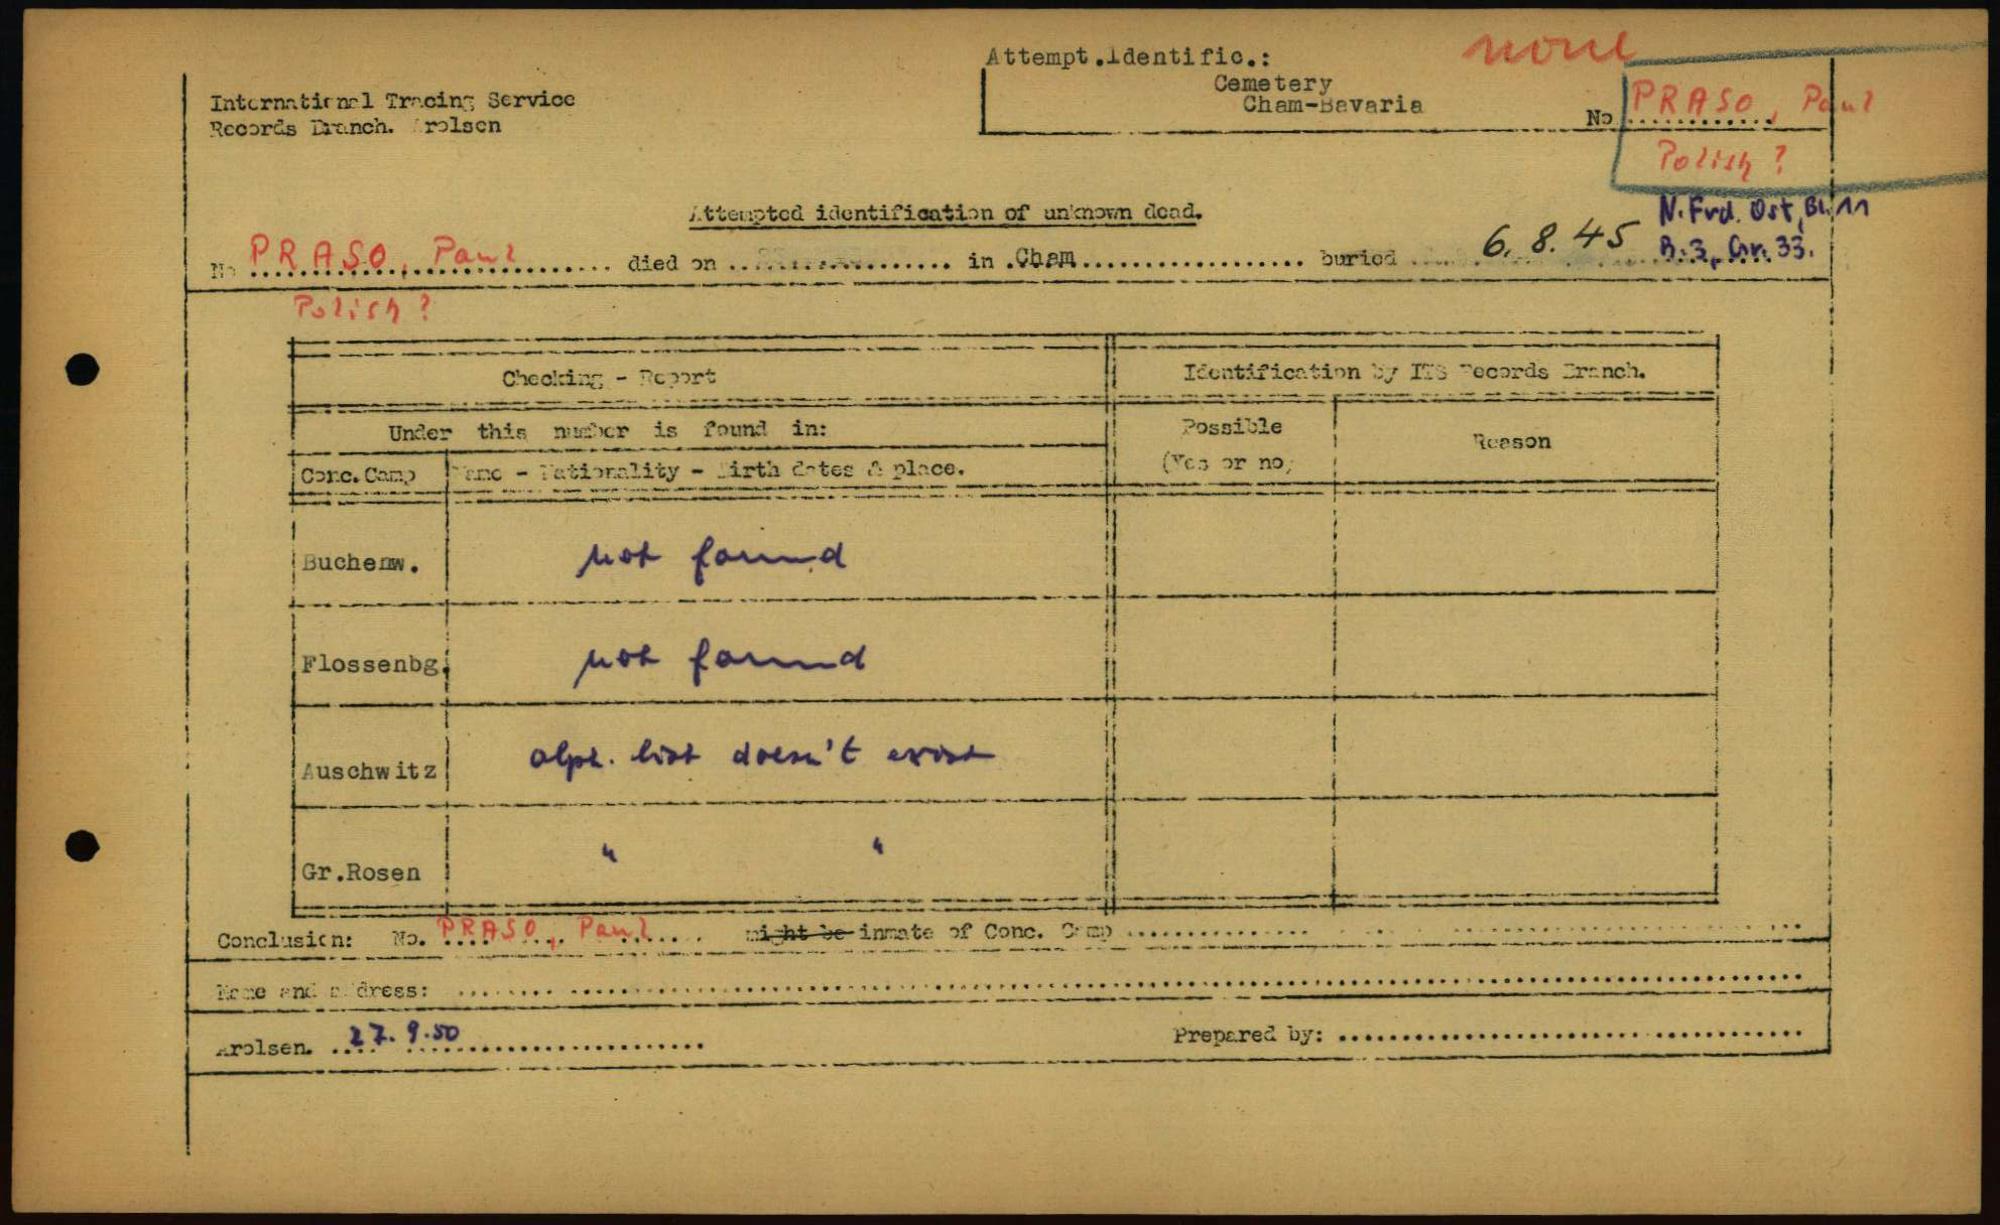 Attempt.Identific.: none
Cemetery
Cham-Bavaria
International Tracing Service
Records Branch. Arolsen
No ............ PRASO, Paul
Polish ?
Attempted identification of unknown dead.
N. Frd. Ost, Bl. 11
No PRASO, Paul died on ............ in Cham ............ buried 6. 8. 45 R. 3, Gr. 33.
Polish ?
Checking - Report Identification by ITS Records Branch.
Under this number is found in: Possible (Yes or no) Reason
Conc.Camp Name - Nationality - Birth dates & place.
Buchenw. not found
Flossenbg. not found
Auschwitz alph. list doesn't exist
Gr.Rosen " "
Conclusion: No. PRASO, Paul might be inmate of Conc. Camp ............
Name and address: ............
Arolsen. 27. 9. 50 Prepared by: ............